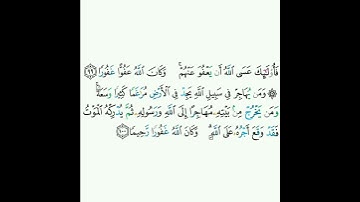 فَأُو۟لَٰٓئِكَ عَسَى ٱللَّهُ أَن يَعْفُوَ عَنْهُمْ ۚ وَكَانَ ٱللَّهُ عَفُوًّا غَفُورًا ۝٩٩
۞ وَمَن يُهَاجِرْ فِى سَبِيلِ ٱللَّهِ يَجِدْ فِى ٱلْأَرْضِ مُرَٰغَمًا كَثِيرًا وَسَعَةً ۚ
وَمَن يَخْرُجْ مِنۢ بَيْتِهِۦ مُهَاجِرًا إِلَى ٱللَّهِ وَرَسُولِهِۦ ثُمَّ يُدْرِكْهُ ٱلْمَوْتُ
فَقَدْ وَقَعَ أَجْرُهُۥ عَلَى ٱللَّهِ ۗ وَكَانَ ٱللَّهُ غَفُورًا رَّحِيمًا ۝١٠٠